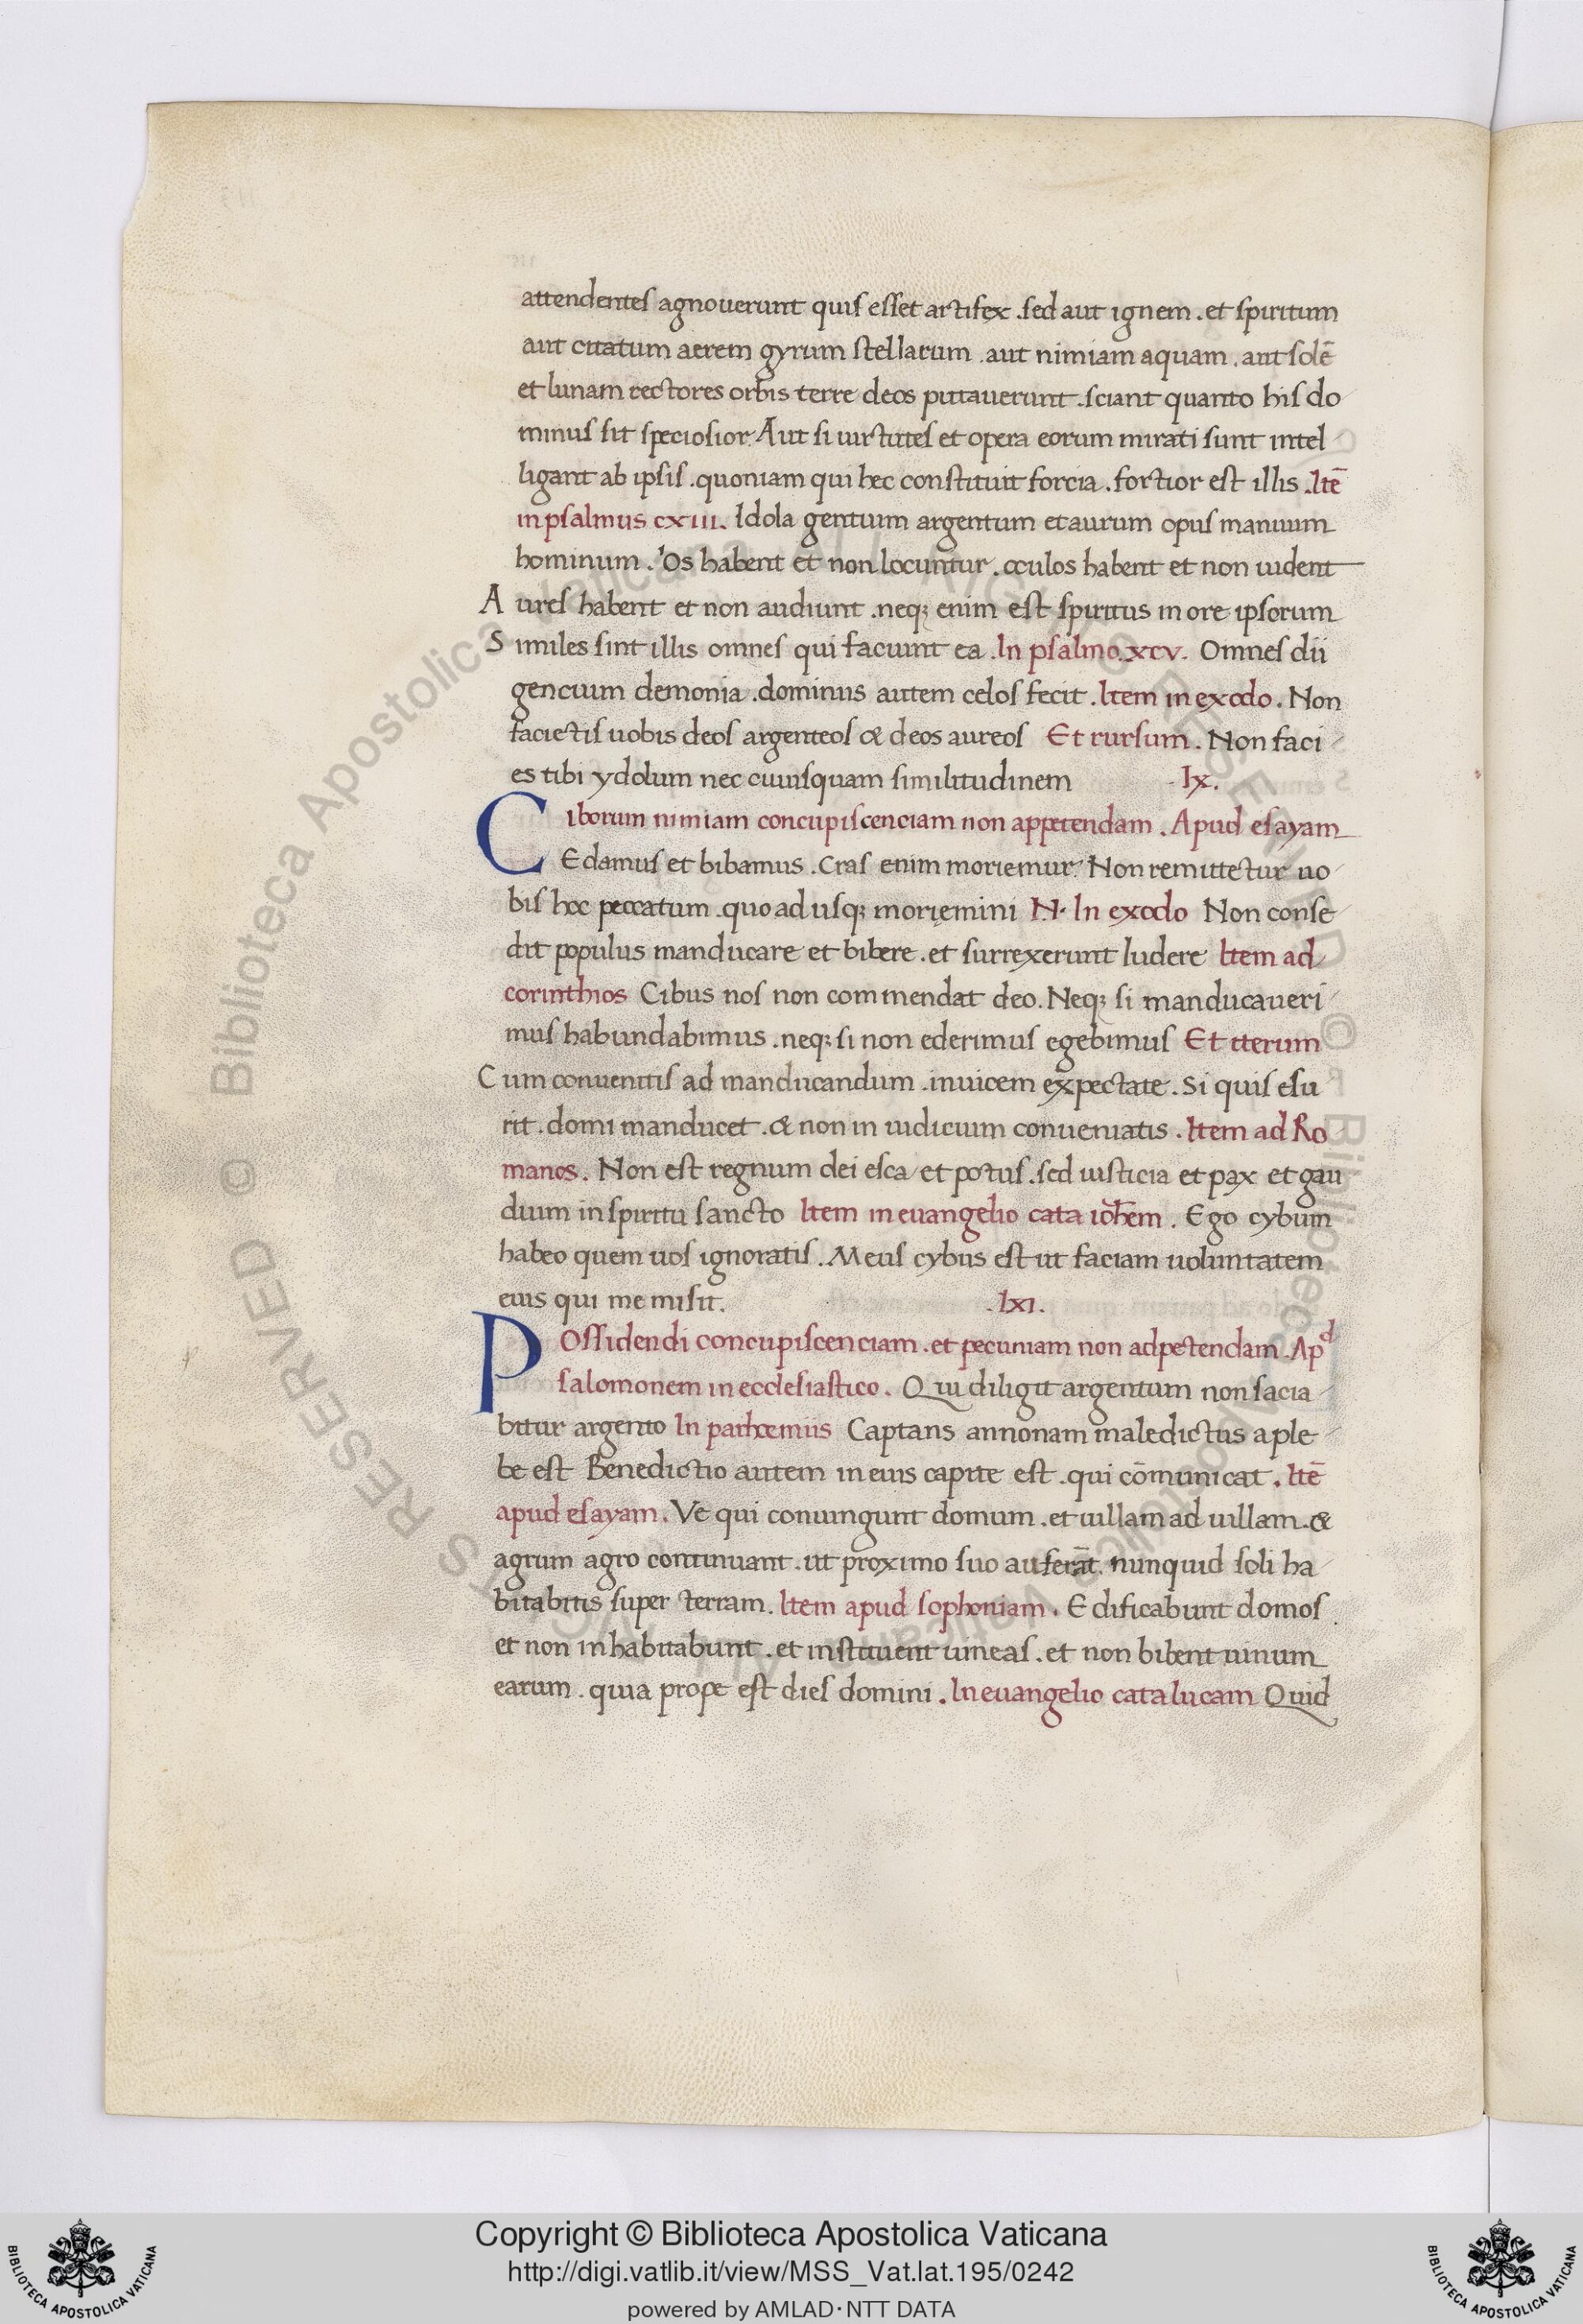 attendentes agnouerunt quis esset artifex .sed aut ignem .et spiritum
aut citatum aerem gyrum stellarum .aut nimiam aquam .aut solē
et lunam rectores orbis terre deos putauerunt .sciant quanto his do
minus sit speciosior. Aut si uirtutes et opera eorum mirati sunt intel
ligant ab ipsis .quoniam qui hec constituit forcia .fortior est illis .Itē
in psalmus cxiii. Idola gentium argentum et aurum opus manuum
hominum. Os habent et non locuntur .oculos habent et non uident
Aures habent et non audiunt .neq; enim est spiritus in ore ipsorum
Similes sint illis omnes qui faciunt ea .In psalmo.xcv. Omnes dii
gencium demonia .dominus autem celos fecit .Item in exodo. Non
facietis uobis deos argenteos & deos aureos Et rursum. Non faci
es tibi ydolum nec cuiusquam similitudinem .lx.
Ciborum nimiam concupiscenciam non appetendam. Apud esayam
Edamus et bibamus .cras enim moriemur. Non remittetur uo
bis hoc peccatum .quo ad usq; moriemini N. In exodo Non conse
dit populus manducare et bibere .et surrexerunt ludere Item ad
corinthios Cibus nos non commendat deo. Neq; si manducaueri
mus habundabimus .neq; si non ederimus egebimus Et iterum
Cum conuenitis ad manducandum .inuicem expectate. Si quis esu
rit .domi manducet .& non in iudicium conueniatis .Item ad Ro
manos. Non est regnum dei esca et potus .sed iusticia et pax et gau
dium in spiritu sancto Item in euangelio cata ioh̄em. Ego cybum
habeo quem uos ignoratis. Meus cybus est ut faciam uoluntatem
eius qui me misit. .lxi.
Possidendi concupiscenciam .et pecuniam non adpetendam .Apᵈ
salomonem in ecclesiastico. Qui diligit argentum non sacia
bitur argento In parhoemiis Captans annonam maledictus a ple
be est Benedictio autem in eius capite est .qui cōmunicat .Itē
apud esayam. Ve qui coniungunt domum .et uillam ad uillam .&
agrum agro continuant .ut proximo suo auferāt. nunquid soli ha
bitabitis super terram. Item apud sophoniam. Edificabunt domos
et non inhabitabunt .et instituent uineas .et non bibent uinum
earum .quia prope est dies domini .In euangelio cata lucam Quid
Copyright © Biblioteca Apostolica Vaticana
http://digi.vatlib.it/view/MSS_Vat.lat.195/0242
powered by AMLAD·NTT DATA
BIBLIOTECA APOSTOLICA VATICANA
BIBLIOTECA APOSTOLICA VATICANA